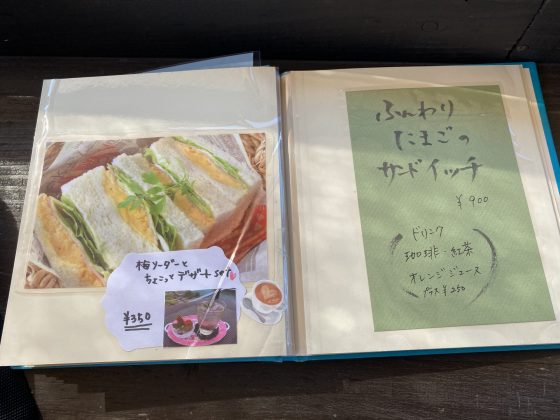 梅ソーダーと
ちょこっとデザートset
¥350
ふんわり
たまごの
サンドイッチ
¥900
ドリンク
珈琲・紅茶
オレンジジュース
プラス¥250